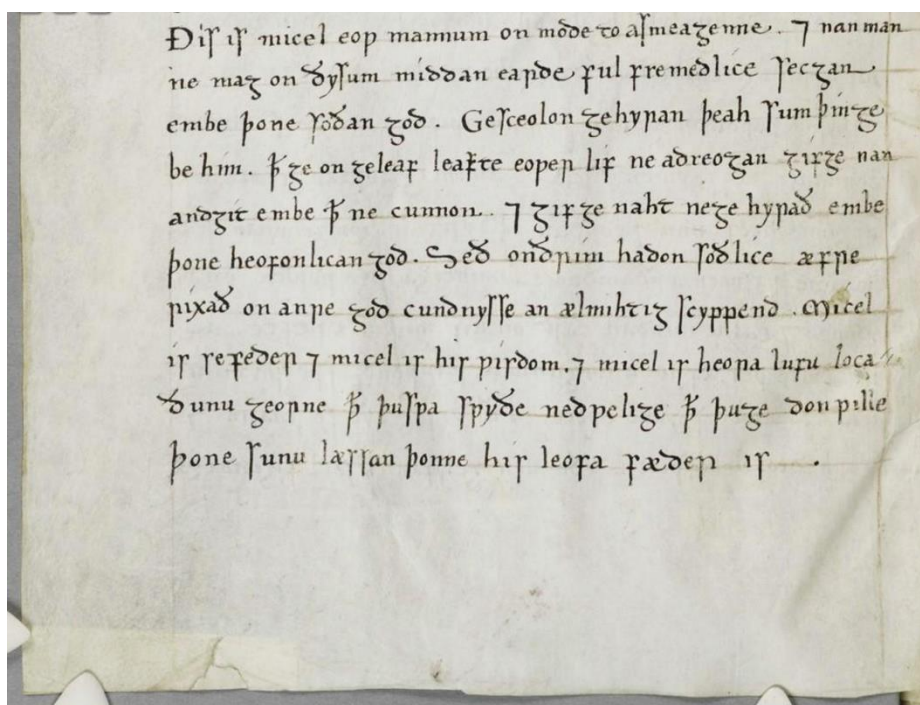 Ðis is micel eoƿ mannum on mode to asmeagenne . ⁊ nan man
ne mæg on ðysum middan earde ful fremedlice secgan
embe þone soðan god . Ge sceolon gehyran þeah sum þinge
be him . ꝥ ge on geleaf leafte eoƿer lif ne adreogan gif ge nan
andgit embe ꝥ ne cunnon . ⁊ gif ge naht ne ge hyrað embe
þone heofonlican god . Seð onðrim hadon soðlice æfre
rixað on anre god cundnysse an ælmihtig scyppend . Micel
is se feder ⁊ micel is his ƿisdom . ⁊ micel is heora lufu loca
ðunu georne ꝥ þu sƿa sƿyðe ne dƿelige ꝥ þu ge don ƿille
þone sunu læssan þonne his leofa fæder is .